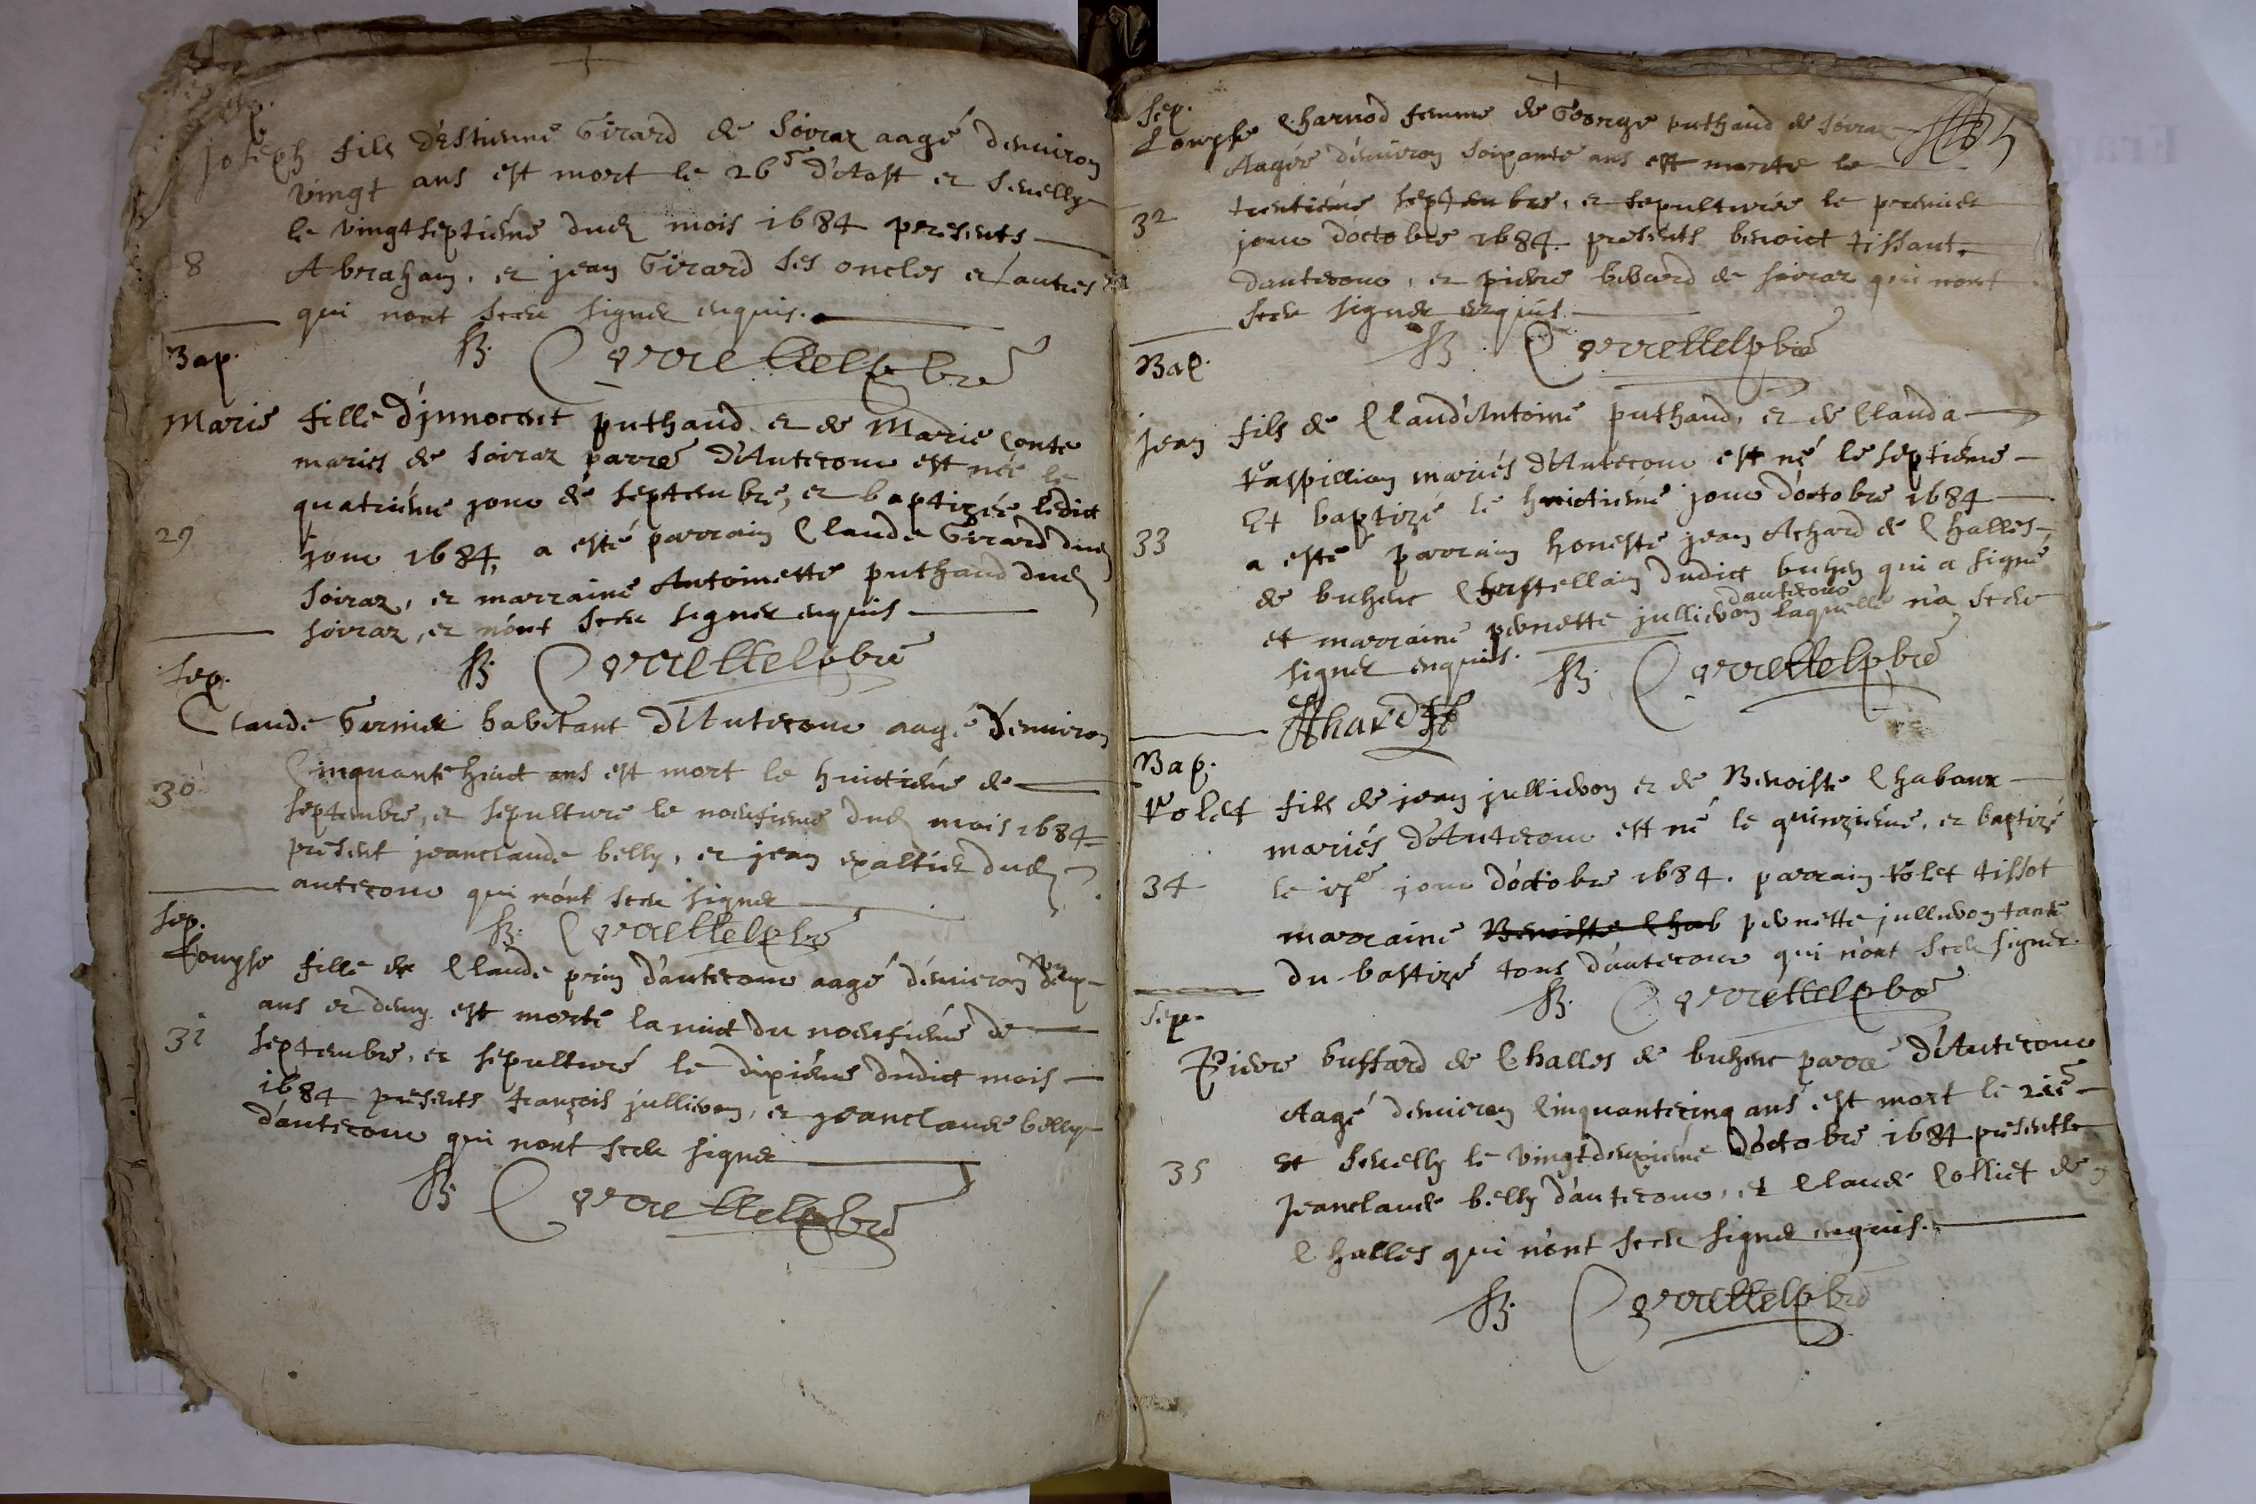 Sep.
Joseph fils d'Estienne Girard de Soiraz aagé d'environ
vingt ans est mort le 26e d'Aost et sevelly
le vingtseptiéme dud mois 1684 presents
8
Abraham, et jean Girard ses oncles et autres
qui n'ont sceu signer enquis.
Bap.
Marie fille d'jnnocent puthaud et de Marie Conte
mariés de soiraz parre d'Antecour est née le
quatriéme jour de septembre, et baptizée ledict
29
jour 1684, a esté parrain Claude Girard dud
soiraz, et marraine Antoinette puthaud dud
soiraz, et n'ont sceu signer enquis
Sep.
Claude Garnier habitant d'Antecour aagé d'environ
Cinquante huict ans est mort le huictiéme de
30
septembre, et sepulturé le noeufiéme dud mois 1684
present jeanclaude belly, et jean dud
antecour qui n'ont sceu signer
Sep.
Louyse fille de Claude prin d'antecour aagé d'environ deux
ans et demy est morte la nuict du noeufiéme de
31
septembre, et sepulturé le dixiéme dudict mois
1684 presents françois jullieron, et jeanclaude belly
d'antecour qui n'ont sceu signer
Sep.
Louyse Charnod femme de George puthaud de soiraz
Aagée d'environ soixante ans est morte le
32
trentiéme septembre, et sepulturée le premier
jour d'octobre 1684. presents benoict tissant
d'antecour, et pierre de soiraz qui n'ont
sceu signer enquis.
Bap.
Jean fils de Claud'Antoine puthaud, et de Clauda
Vaspillion mariés d'Antecour est né le septiéme
Et baptizé le huictiéme jour d'octobre 1684
33
a esté parrain honeste jean Achard de Challes
de buhenc Chastellain dudict buhen qui a signé
d'antecour
et marraine pernette jullieron laquelle n'a sceu
signer enquis.
Achard
Bap.
Volet fils de jean jullieron et de Benoiste Chabaux
mariés d'Antecour est né le quinziéme, et baptizé
34
le 17e jour d'octobre 1684. parrain Volet tissot
marraine Benoiste Chab pernette jullieron tante
du baptizé tous d'antecour qui n'ont sceu signer
Sep.
Pierre Guffard de Challes de buhenc parre d'Antecour
Aagé d'environ Cinquantecinq ans est mort le 21e
35
et sevelly le vingtdeuxiéme d'octobre 1684 presents
Jeanclaude belly d'antecour, et Claude Colliet de
Challes qui n'ont sceu signer enquis.